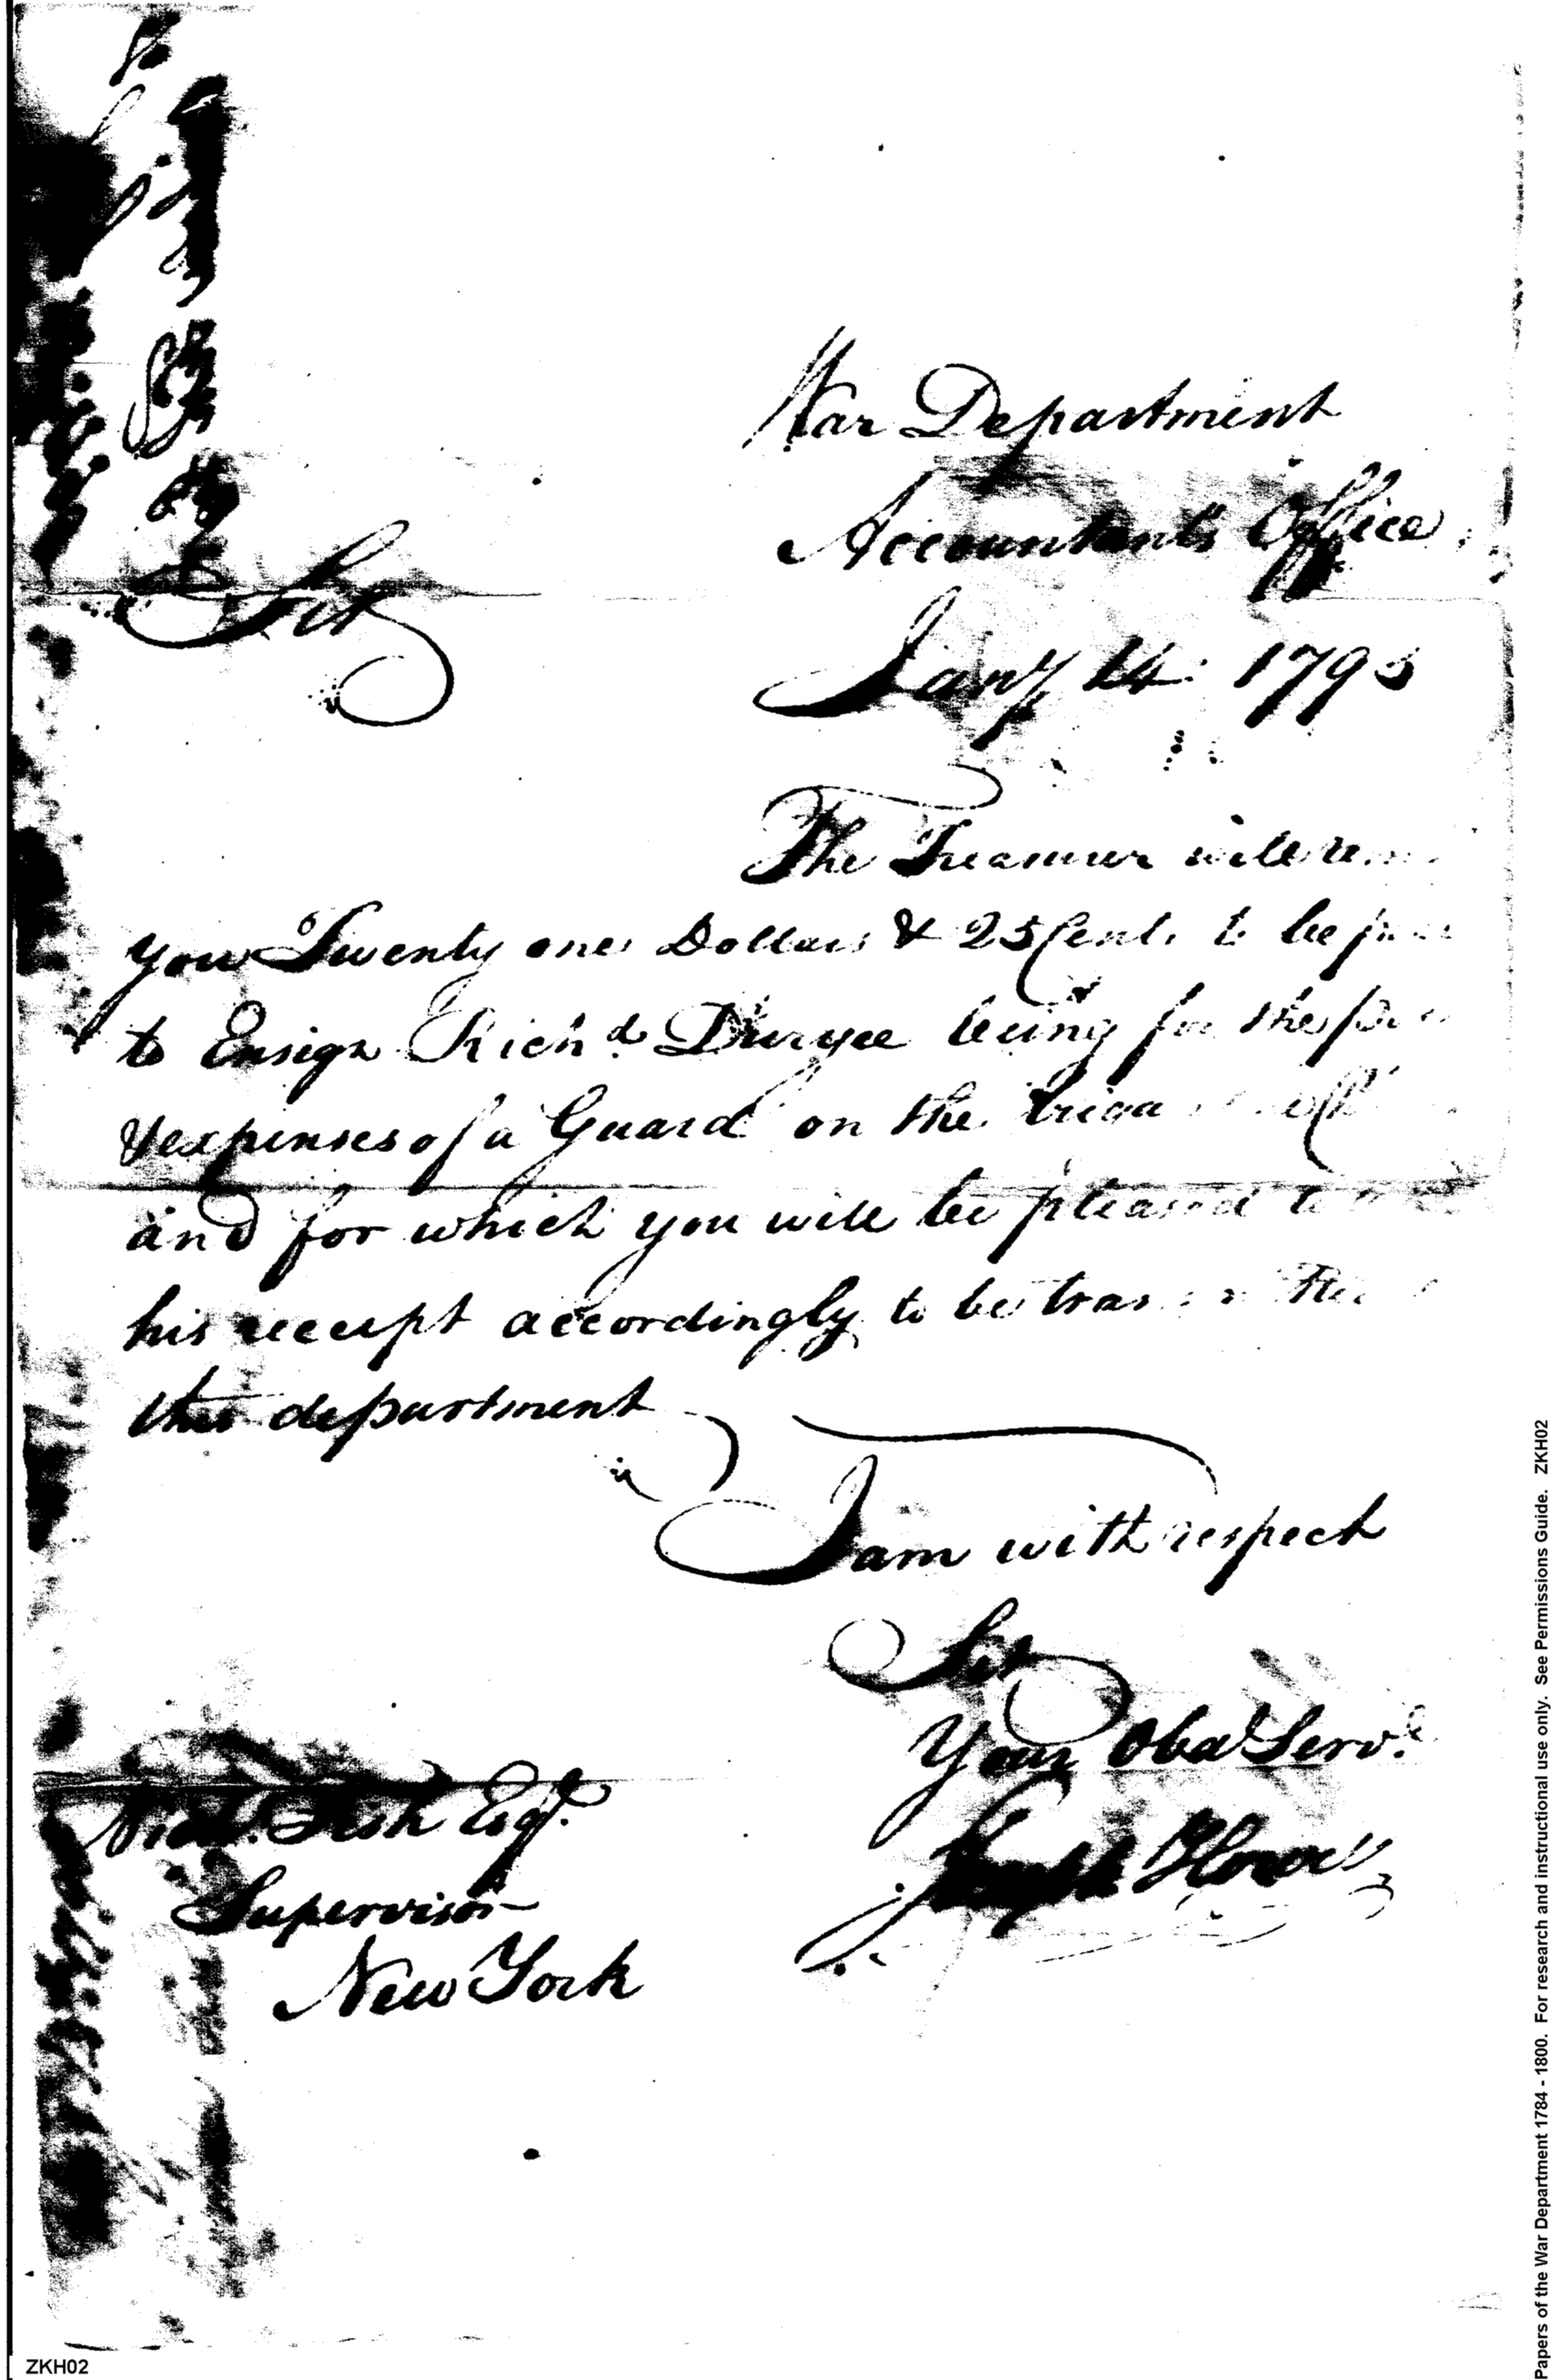 War Department
Accountants Office
Sir
Jany 14. 1795
The Treasurer will
you Twenty one Dollars & 25 Cents to be
to Ensign Richd Duryee being for the
& expenses of a Guard on the
and for which you will be pleased to
his receipt accordingly to be
this department
I am with respect
Sir
Your Obd Servt
Joseph Howell
Nichs. Fish Esqr.
Supervisor
New York
ZKH02
Papers of the War Department 1784 - 1800. For research and instructional use only. See Permissions Guide. ZKH02